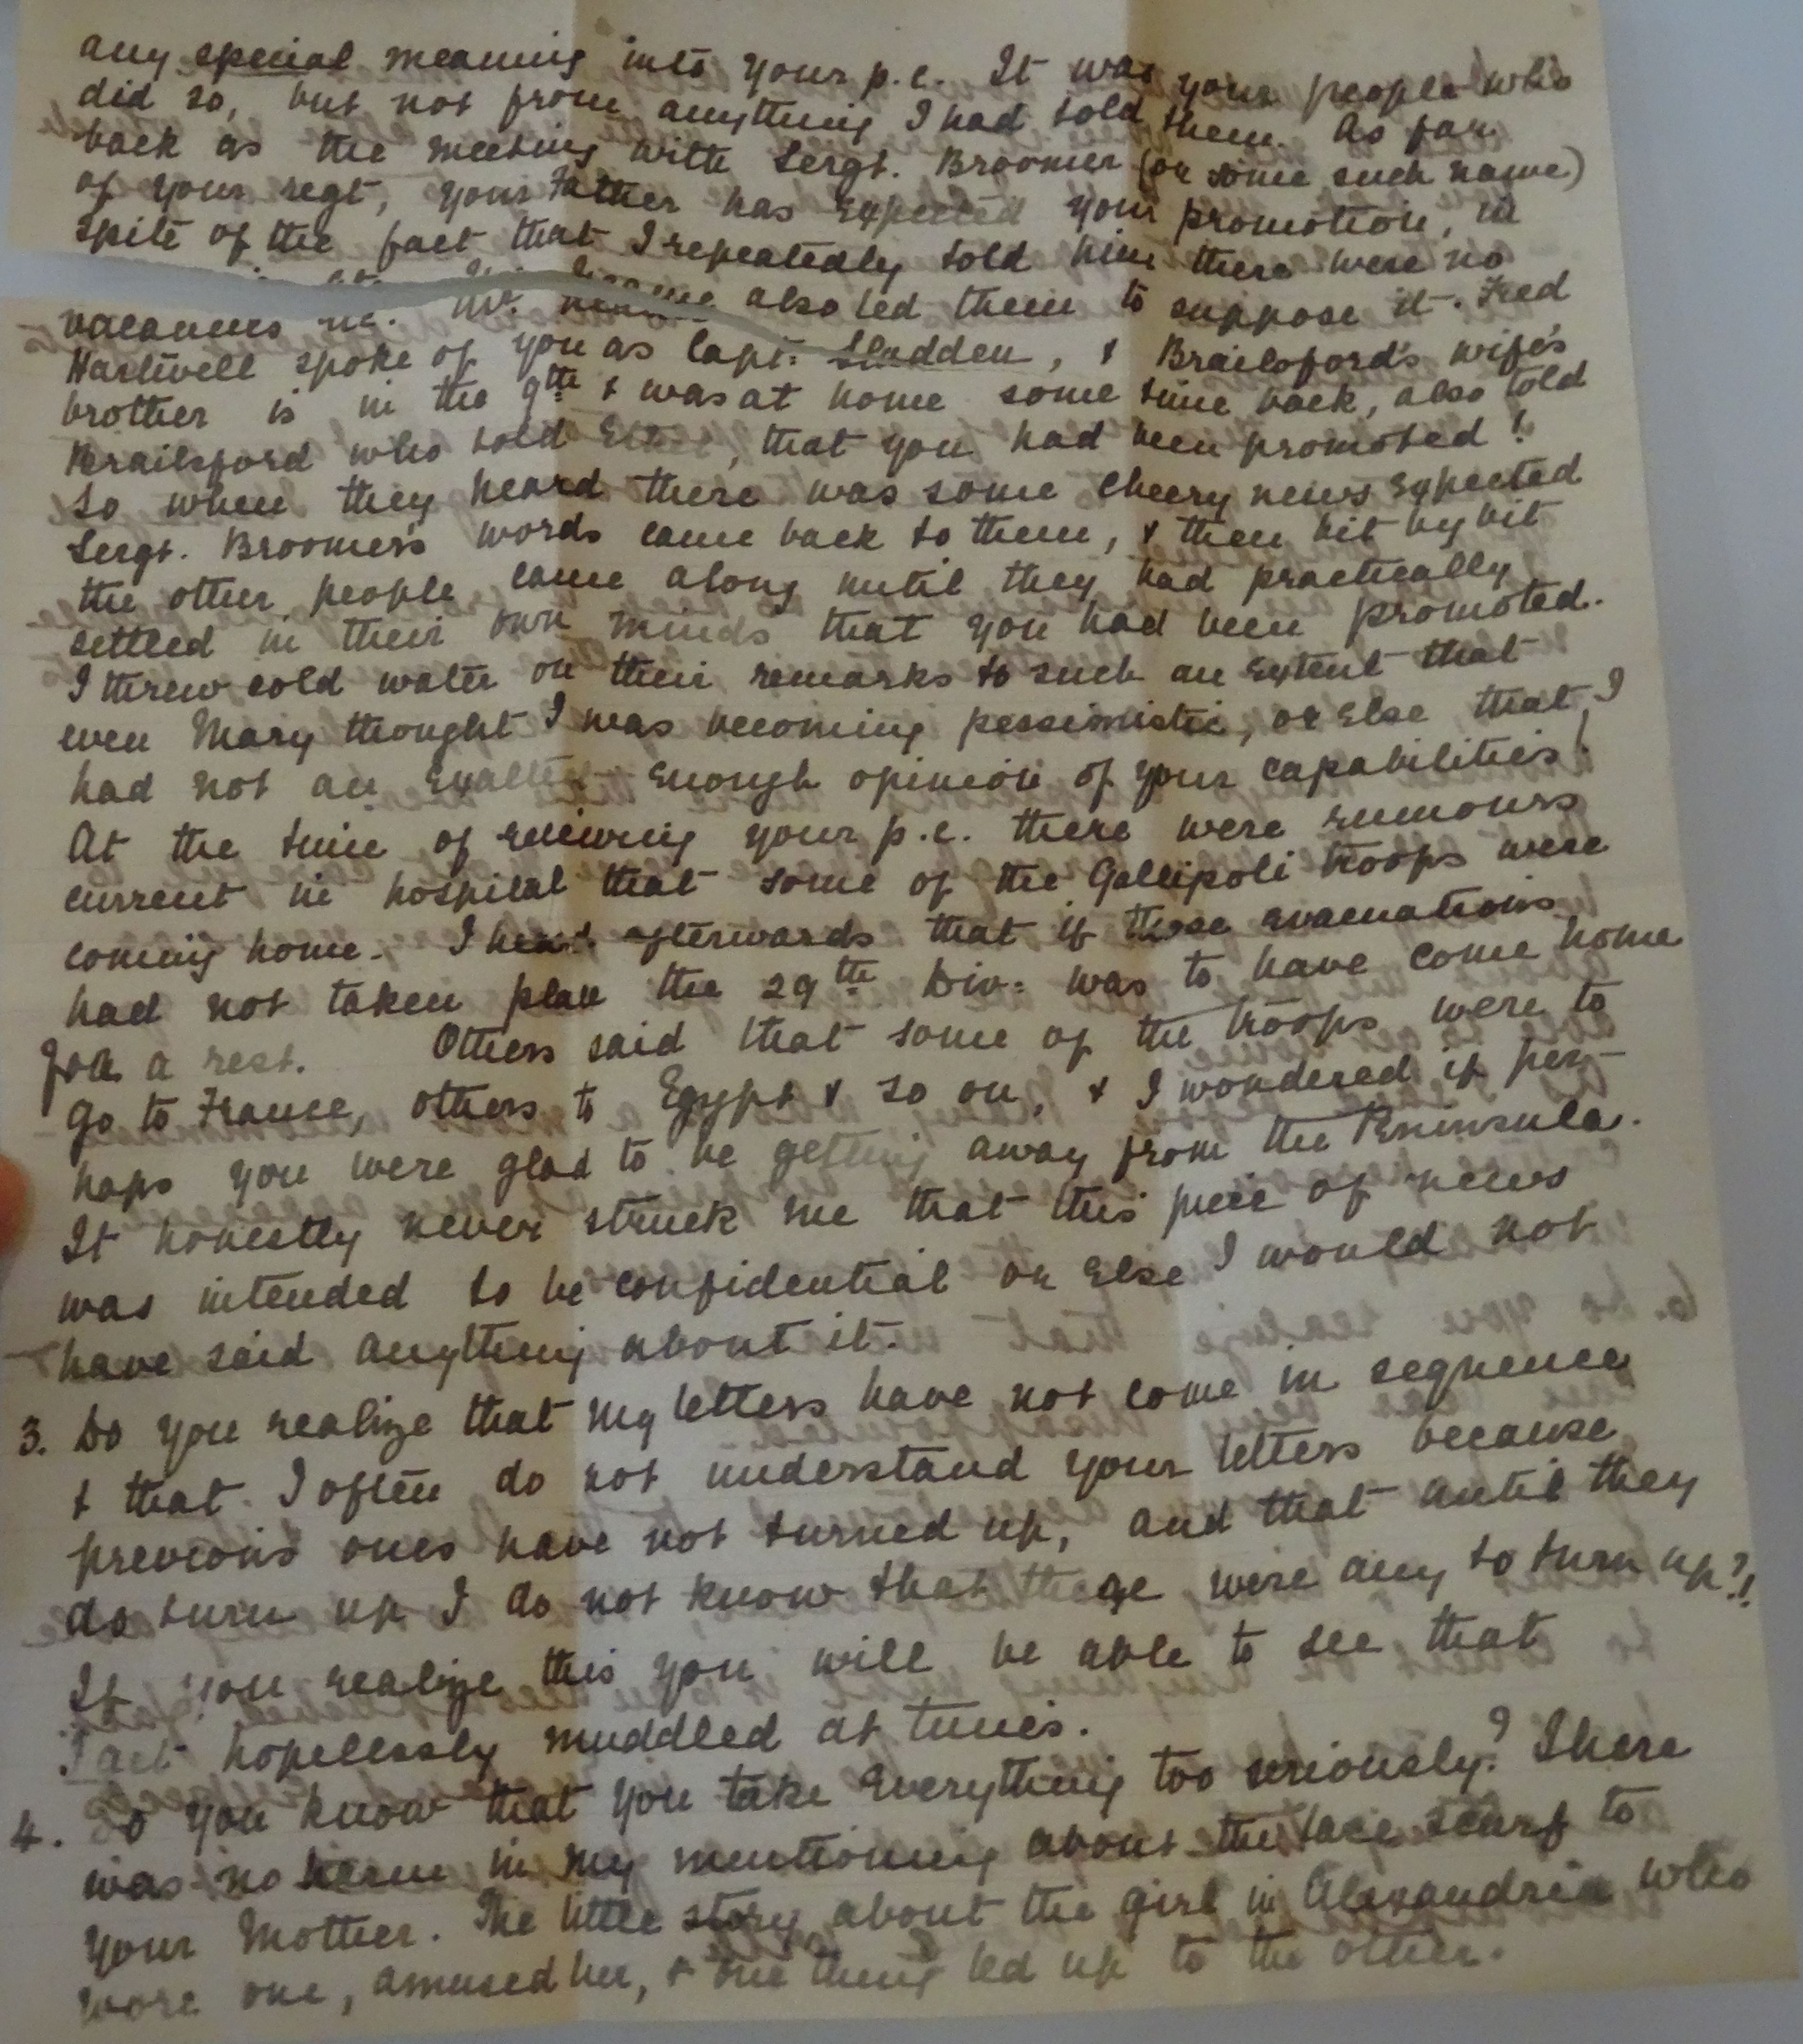 any special meaning into your p.c. It was your people who
did so, but not from anything I had told them. As far
back as the meeting with Sergt. Broomer (or some such name)
of your regt, your Father has expected your promotion, in
spite of the fact that I repeatedly told him there were no
vacancies also led them to suppose it. Fred
Hartwell spoke of you as Capt. Sladden, & Brailsford's wife's
brother is in the 9th & was at home some time back, also told
Brailsford who told, that you had been promoted!
So when they heard there was some cheery news expected
Sergt. Broomer's words came back to them, & then bit by bit
the other people came along until they had practically
settled in their own minds that you had been promoted.
I threw cold water on their remarks to such an extent that
even Mary thought I was becoming pessimistic, or else that I
had not an exalted enough opinion of your capabilities!
At the time of receiving your p.c. there were rumours
current in hospital that some of the Gallipoli troops were
coming home. I heard afterwards that if these evacuations
had not taken place the 29th Div: was to have come home
for a rest. Others said that some of the troops were to
go to France, others to Egypt & so on, & I wondered if per-
haps you were glad to be getting away from the Peninsula.
It honestly never struck me that this piece of news
was intended to be confidential or else I would not
have said anything about it.
3. Do you realize that my letters have not come in sequence
& that I often do not understand your letters because
previous ones have not turned up, and that until they
do turn up I do not know that there were any to turn up?!
If you realize this you will be able to see that
I get hopelessly muddled at times.
4. Do you know that you take everything too seriously? There
was no harm in my mentioning about the lace scarf to
your Mother. The little story about the girl in Alexandria who
wore one, amused her, & one thing led up to the other.